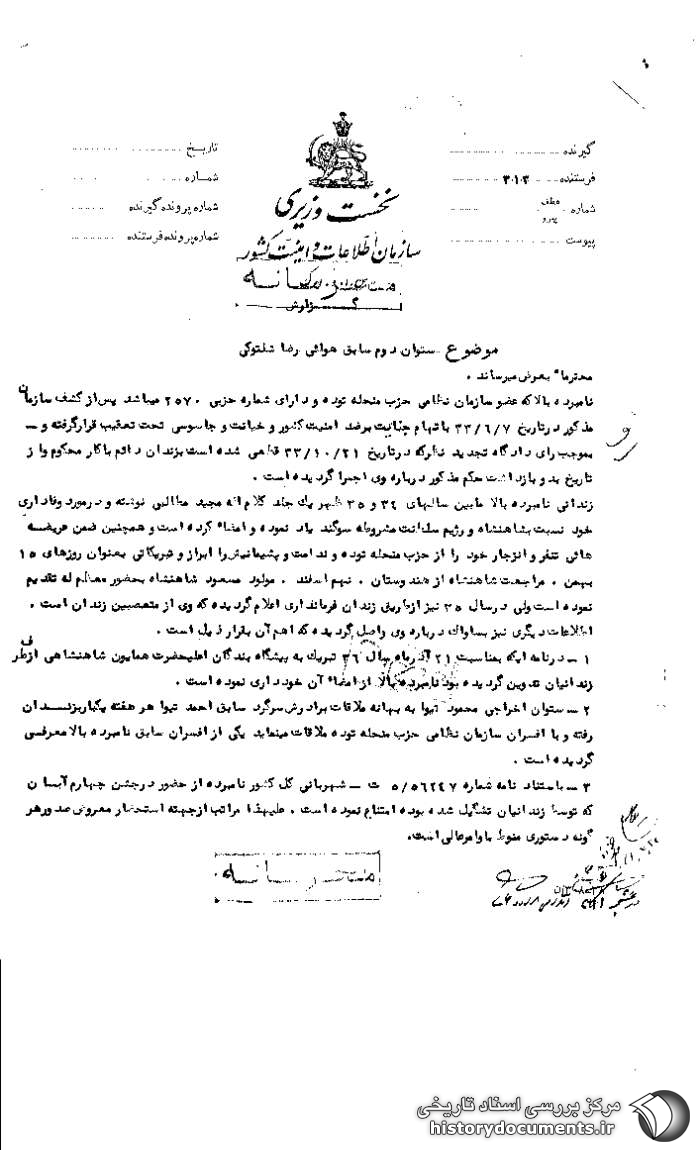 گیرنده
فرستنده ۳۰۱۲
شماره عطف پیرو
پیوست
تاریخ
شماره
شماره پرونده گیرنده
شماره پرونده فرستنده
نخست وزیری
سازمان اطلاعات و امنیت کشور
گزارش
موضوع ستوان دوم سابق هوائی رضا شلتوکی
محترما" بعرض میرساند .
نامبرده بالا که عضو سازمان نظامی حزب منحله توده و دارای شماره حزبی ۲۵۷۰ میباشد پس از کشف سازمان
مذکور در تاریخ ۳۳/۶/۷ باتهام جنایت برضد امنیت کشور و خیانت و جاسوسی تحت تعقیب قرار گرفته و ــ
بموجب رای دادگاه تجدید نظر که در تاریخ ۳۳/۱۰/۲۱ قطعی شده است بزندان دائم با کار محکوم و از
تاریخ بدو بازداشت حکم مذکور درباره وی اجرا گردیده است .
زندانی نامبرده بالا مابین سالهای ۳۴ و ۳۵ ظهر یك جلد کلام اله مجید مطالبی نوشته و در مورد وفاداری
خود نسبت بشاهنشاه و رژیم سلطنت مشروطه سوگند یاد نموده و امضاء کرده است و همچنین ضمن عریضه
هائی تنفر و انزجار خود را از حزب منحله توده و ندامت و پشیمانیش را ابراز و تبریکاتی بعنوان روزهای ۱۵
بهمن . مراجعت شاهنشاه از هندوستان . نهم اسفند . مولود مسعود شاهنشاه بحضور معظم له تقدیم
نموده است ولی در سال ۳۵ نیز از طریق زندان فرمانداری اعلام گردیده که وی از متعصبین زندان است .
اطلاعات دیگری نیز بساواك درباره وی واصل گردیده که اهم آن بقرار ذیل است .
۱ ــ در نامه ایکه بمناسبت ۲۱ آذرماه سال ۳۶ تبریك به پیشگاه بندگان اعلیحضرت همایون شاهنشاهی از طرف
زندانیان تدوین گردیده بود نامبرده بالا از امضاء آن خودداری نموده است .
۲ ــ ستوان اخراجی محمود تیوا به بهانه ملاقات برادرش سرگرد سابق احمد تیوا هر هفته یکبار بزندان
رفته و با افسران سازمان نظامی حزب منحله توده ملاقات مینماید یکی از افسران سابق نامبرده بالا معرفی
گردیده است .
۳ ــ باستناد نامه شماره ۵/۵۶۲۴۷ ت ــ شهربانی کل کشور نامبرده از حضور در جشن چهارم آبان
که توسط زندانیان تشکیل شده بوده امتناع نموده است . علیهذا مراتب از جهته استحضار معروض صدور هر
گونه دستوری منوط باوامر عالی است.
مرکز بررسی اسناد تاریخی
historydocuments.ir